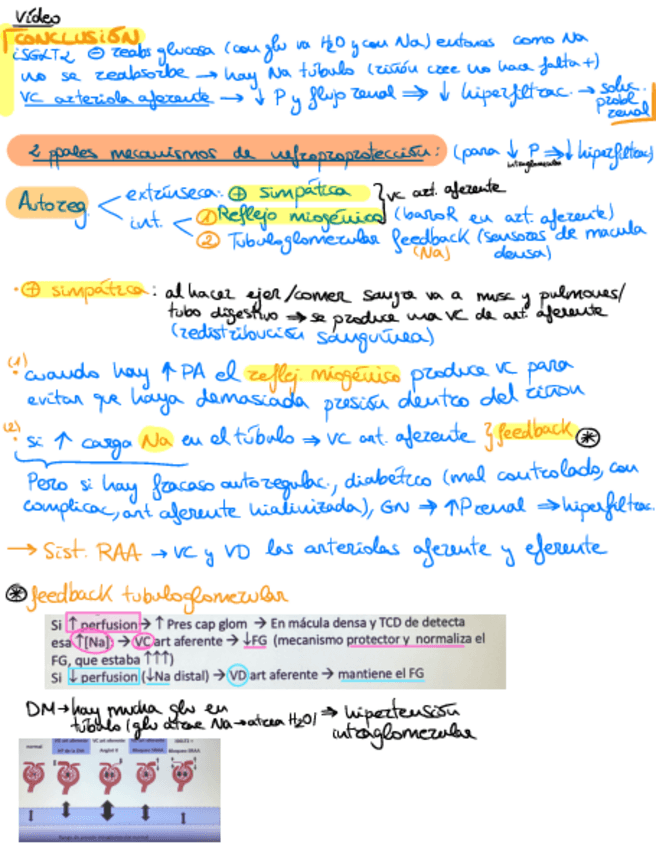 Vídeo
CONCLUSIÓN
iSGLT2 ⊖ reabs glucosa (con glu va H2O y con Na) entonces como Na
no se reabsorbe → hay Na túbulo (riñón cree no hace falta +)
VC arteriola aferente → ↓ P y flujo renal ⇒ ↓ hiperfiltrac. → soluc. probl renal
2 ppales mecanismos de nefroproprotección: (para ↓ P intraglomerular ⇒ ↓ hiperfiltrac)
Autoreg.
extrínseca: ⊕ simpática } VC art. aferente
int. ① Reflejo miogénico (baroR en art. aferente)
② Tubuloglomerular feedback (sensores de macula densa)
(Na)
· ⊕ simpática: al hacer ejer/comer sangre va a musc y pulmones/
tubo digestivo → se produce una VC de art. aferente
(redistribución sanguínea)
(1)
· cuando hay ↑ PA el reflej. miogénico produce VC para
evitar que haya demasiada presión dentro del riñón
(2)
· si ↑ carga Na en el túbulo → VC art. aferente } feedback ⊛
Pero si hay fracaso autoregulac., diabético (mal controlado, con
complicac, art aferente hialinizada), GN → ↑P renal ⇒ hiperfiltrac.
→ Sist. RAA → VC y VD las arteriolas aferente y eferente
⊛ feedback tubuloglomerular
Si ↑ perfusion → ↑ Pres cap glom → En mácula densa y TCD de detecta
esa ↑[Na] → VC art aferente → ↓FG (mecanismo protector y normaliza el
FG, que estaba ↑↑↑)
Si ↓ perfusion (↓Na distal) → VD art aferente → mantiene el FG
DM → hay mucha glu en
túbulo (glu atrae Na → atrea H2O) → hipertensión
intraglomerular
normal